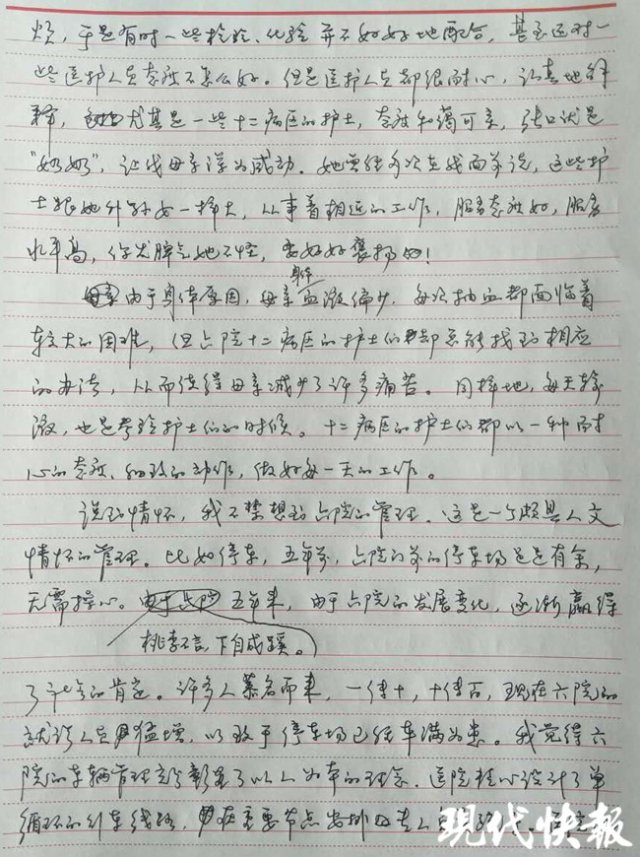 烦，于是有时一些检查、化验并不好好地配合，甚至还对一
些医护人员态度不怎么好。但是医护人员都很耐心，认真地解
释，尤其是一些十二病区的护士，态度和蔼可亲，张口就是
“奶奶”，让我母亲深为感动。她曾经多次在我面前说，这些护
士跟她外孙女一样大，从事着相近的工作，服务态度好，服务
水平高，你发脾气她不怪，要好好褒扬的！
由于身体原因，母亲血液偏少，每次抽血都面临着
较大的困难，但六院十二病区的护士们却总能找到相应
的办法，从而使得母亲减少了许多痛苦。同样地，每天输
液，也是考验护士们的时候。十二病区的护士们都以一种耐
心的态度、细致的动作，做好每一天的工作。
说到情怀，我不禁想到六院的管理。这是一个颇具人文
情怀的管理。比如停车，五年前，六院的停车场还是有余，
无需操心。由于六院五年来，由于六院的发展变化，逐渐赢得
桃李不言，下自成蹊。
了社会的肯定。许多人慕名而来，一传十，十传百，现在六院的
就诊人员猛增，以致于停车场已经车满为患。我觉得六
院的车辆管理充分彰显了以人为本的理念。医院精心设计了单
循环的行车线路，在重要节点安排
现代快报